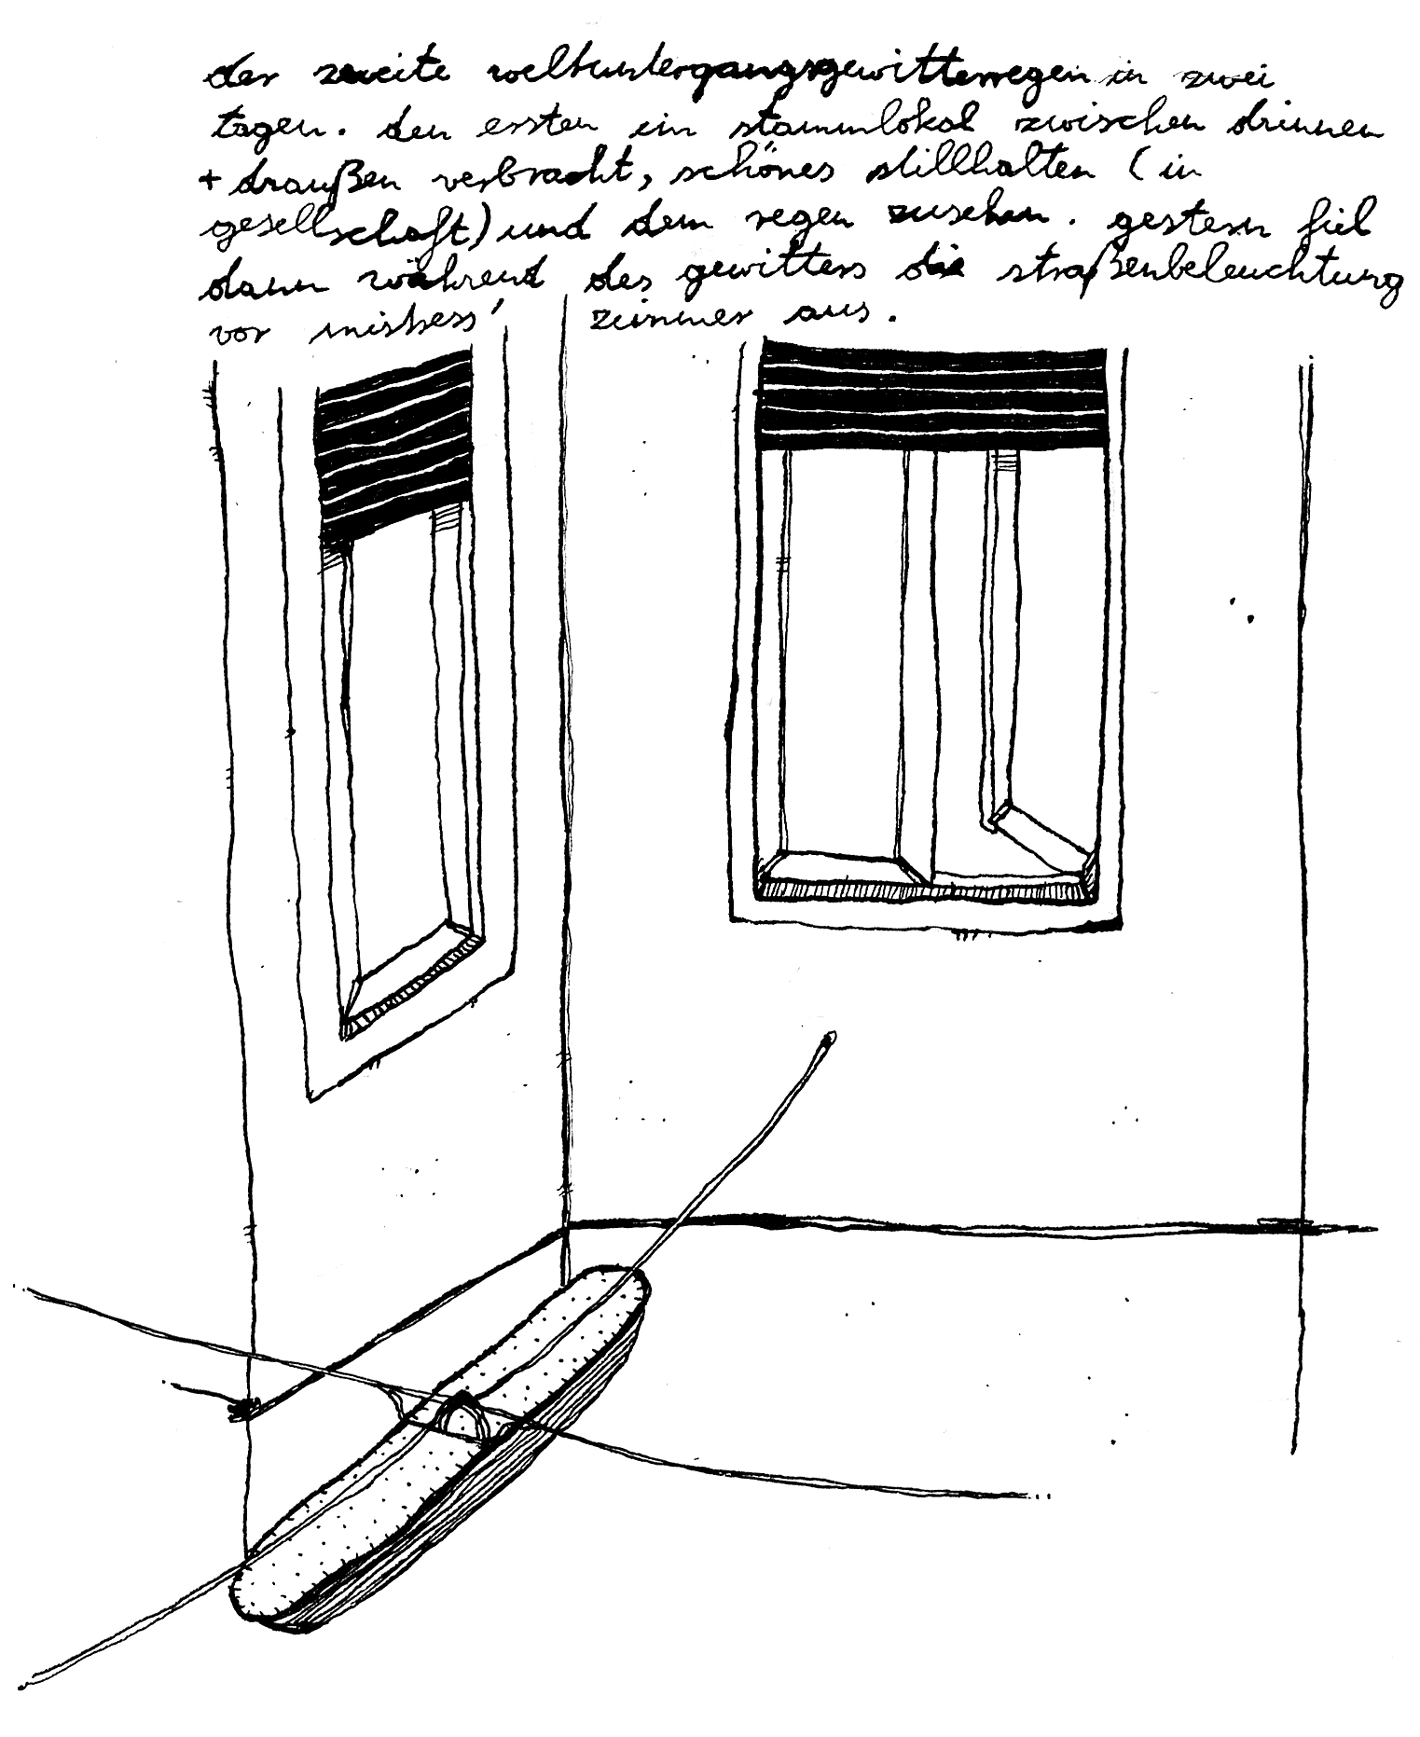 der zweite weltuntergangsgewitterregen in zwei
tagen. den ersten im stammlokal zwischen drinnen
+ draußen verbracht, schönes stillhalten (in
gesellschaft) und dem regen zusehen. gestern fiel
dann während des gewitters die straßenbeleuchtung
vor zimmer aus.